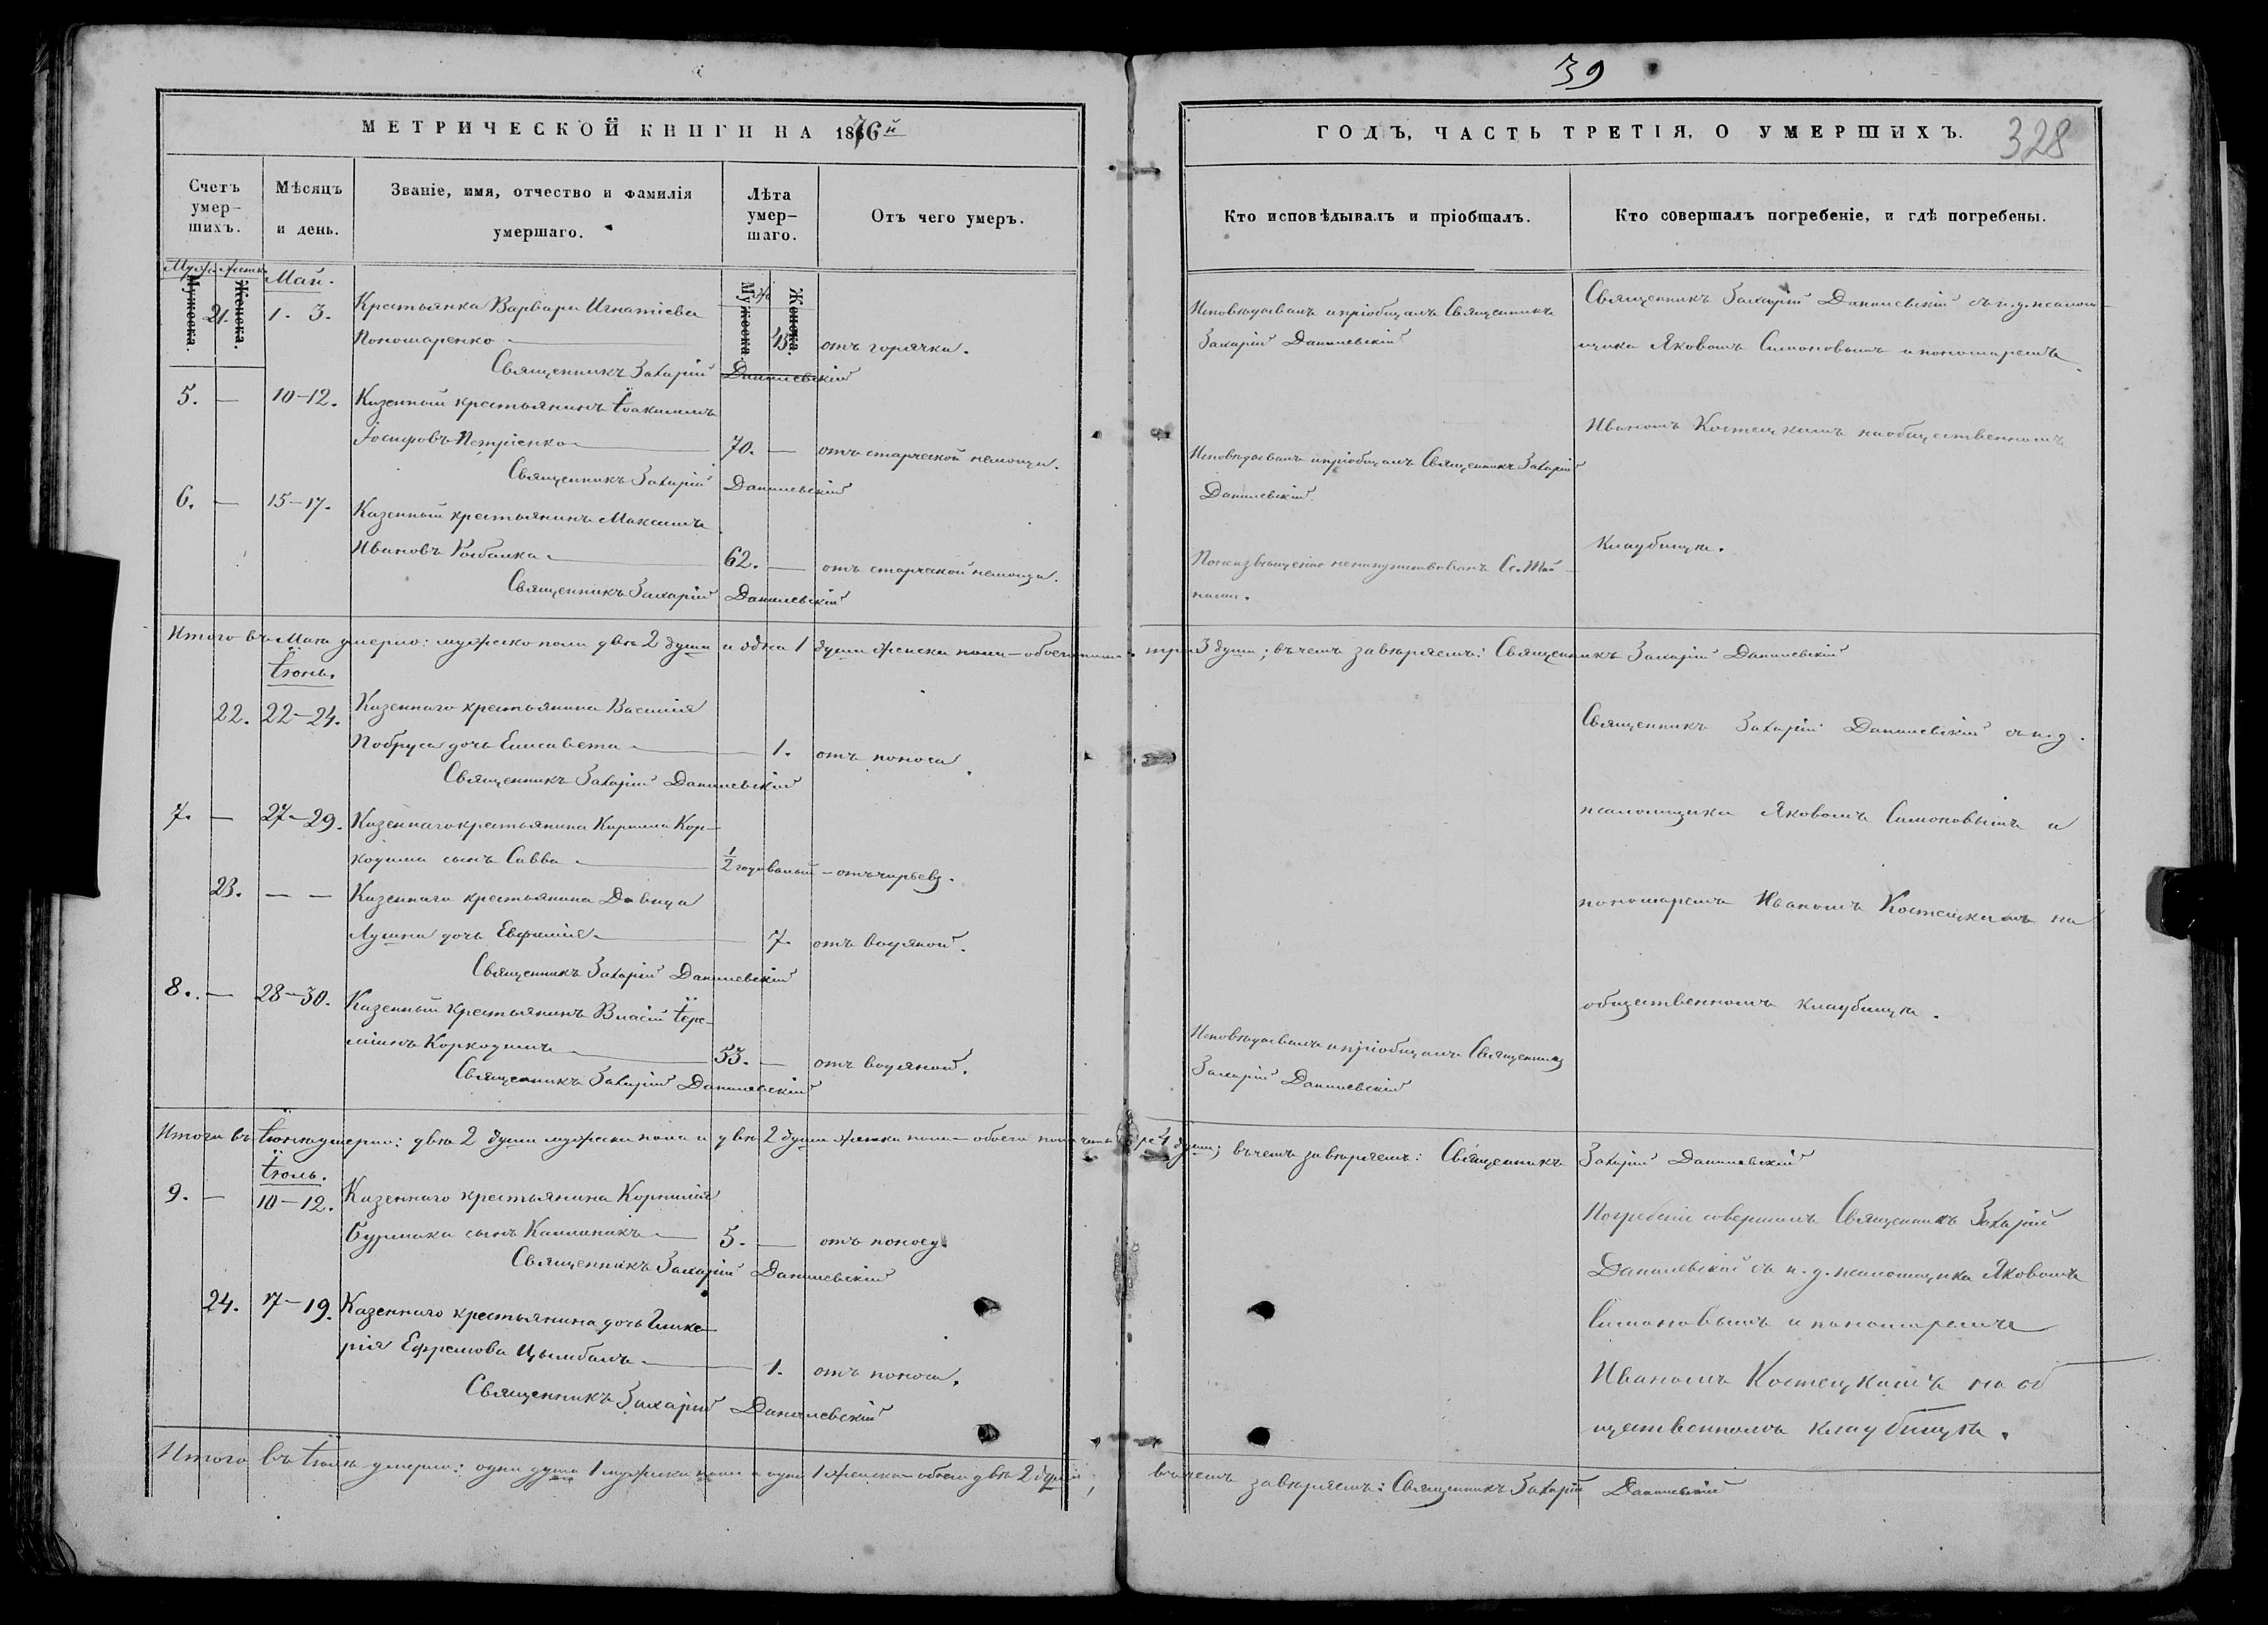 39
МЕТРИЧЕСКОЙ КНИГИ НА 1876й
ГОДЪ, ЧАСТЬ ТРЕТІЯ, О УМЕРШИХЪ.
328
Счетъ умер-шихъ.
Мѣсяцъ и день.
Званіе, имя, отчество и фамилія умершаго.
Лѣта умер-шаго.
Отъ чего умеръ.
Кто исповѣдывалъ и пріобщалъ.
Кто совершалъ погребеніе, и гдѣ погребены.
Мужеска.
Женска.
Мужеска.
Женска.
Май.
21. 1. 3. Крестьянка Варвара Игнатіева
Пономаренко 45. отъ горячки.
Священникъ Захарій Данилевскій
Исповѣдывалъ и пріобщалъ Священникъ
Захарій Данилевскій
5. — 10-12. Казенный крестьянинъ Іоакимъ
Іосифовъ Петріенко 70. — отъ старческой немощи.
Священникъ Захарій Данилевскій
Исповѣдывалъ и пріобщалъ Священникъ Захарій
Данилевскій.
6. — 15-17. Казенный крестьянинъ Максимъ
Ивановъ 62. — отъ старческой немощи.
Священникъ Захарій Данилевскій
Св. Тай-
нами.
Священникъ Захарій Данилевскій съ и. д. псалом-
щика Яковомъ Симоновымъ и пономаремъ
Иваномъ Костецкимъ на общественномъ
кладбищѣ.
Итого въ Маѣ умерло: мужеска пола двѣ 2 души и одна 1 душа женска пола — обоего пола три 3 души; въ чемъ завѣряемъ: Священникъ Захарій Данилевскій
Іюнь.
22. 22-24. Казеннаго крестьянина Василія
Побруса дочь Елисавета 1. отъ поноса.
Священникъ Захарій Данилевскій
7. — 27-29. Казеннаго крестьянина Кирилла Кор-
кодима сынъ Савва ½ годовалый — отъ чирьевъ.
23. — — Казеннаго крестьянина Давида
дочь Евфимія 7. отъ водяной.
Священникъ Захарій Данилевскій
8. — 28-30. Казенный крестьянинъ Власій Іере-
міинъ Коркодимъ 53. — отъ водяной.
Священникъ Захарій Данилевскій
Исповѣдывалъ и пріобщалъ Священникъ
Захарій Данилевскій
Священникъ Захарій Данилевскій съ и. д.
псаломщика Яковомъ Симоновымъ и
пономаремъ Иваномъ Костецкимъ на
общественномъ кладбищѣ.
Итого въ Іюнѣ умерло: двѣ 2 души мужеска пола и двѣ 2 души женска пола — обоего пола четыре 4 души; въ чемъ завѣряемъ: Священникъ Захарій Данилевскій
Іюль.
9. — 10-12. Казеннаго крестьянина Корнилія
Бурлака сынъ Каллиникъ 5. — отъ поносу.
Священникъ Захарій Данилевскій
24. 17-19. Казеннаго крестьянина дочь Глике-
рія Ефремова Цымбалъ 1. отъ поноса.
Священникъ Захарій Данилевскій
Погребеніе совершалъ Священникъ Захарій
Данилевскій съ и. д. псаломщика Яковомъ
Симоновымъ и пономаремъ
Иваномъ Костецкимъ на об-
щественномъ кладбищѣ.
Итого въ Іюлѣ умерло: одна душа 1 мужеска пола и одна 1 женска — обоего двѣ 2 души; въ чемъ завѣряемъ: Священникъ Захарій Данилевскій